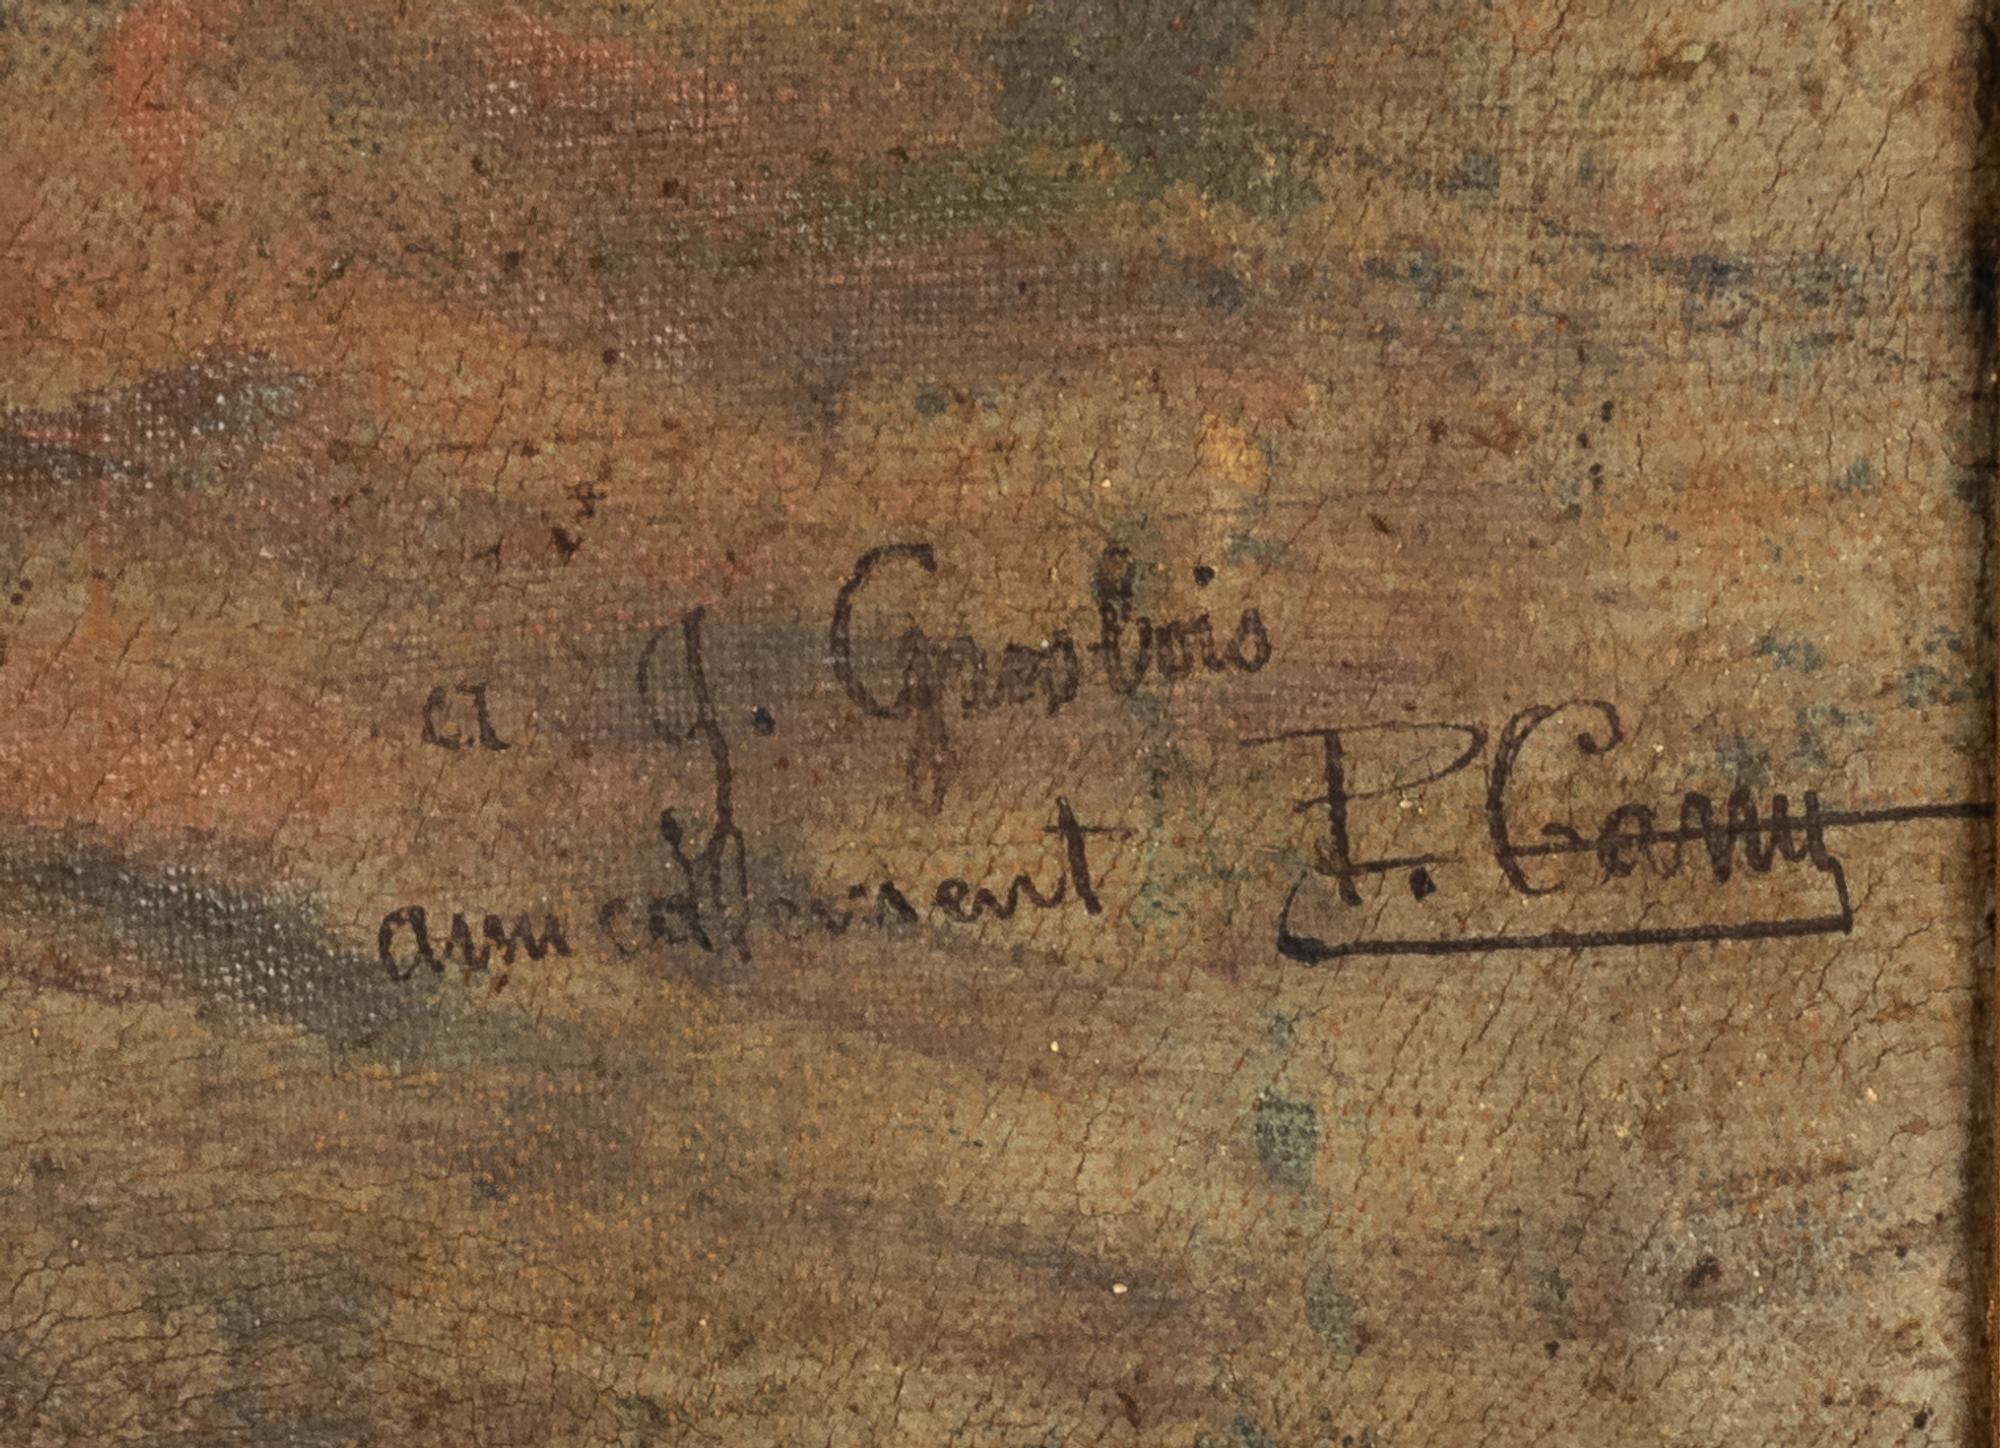 a J. Grosbois
amicalement P. Camy